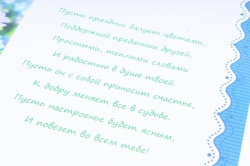 Пусть праздник балует цветами,
Поддержкой преданных друзей,
Простыми, теплыми словами
И радостью в душе твоей.
Пусть он с собой приносит счастье,
К добру меняет все в судьбе.
Пусть настроенье будет ясным,
И повезет во всем тебе!